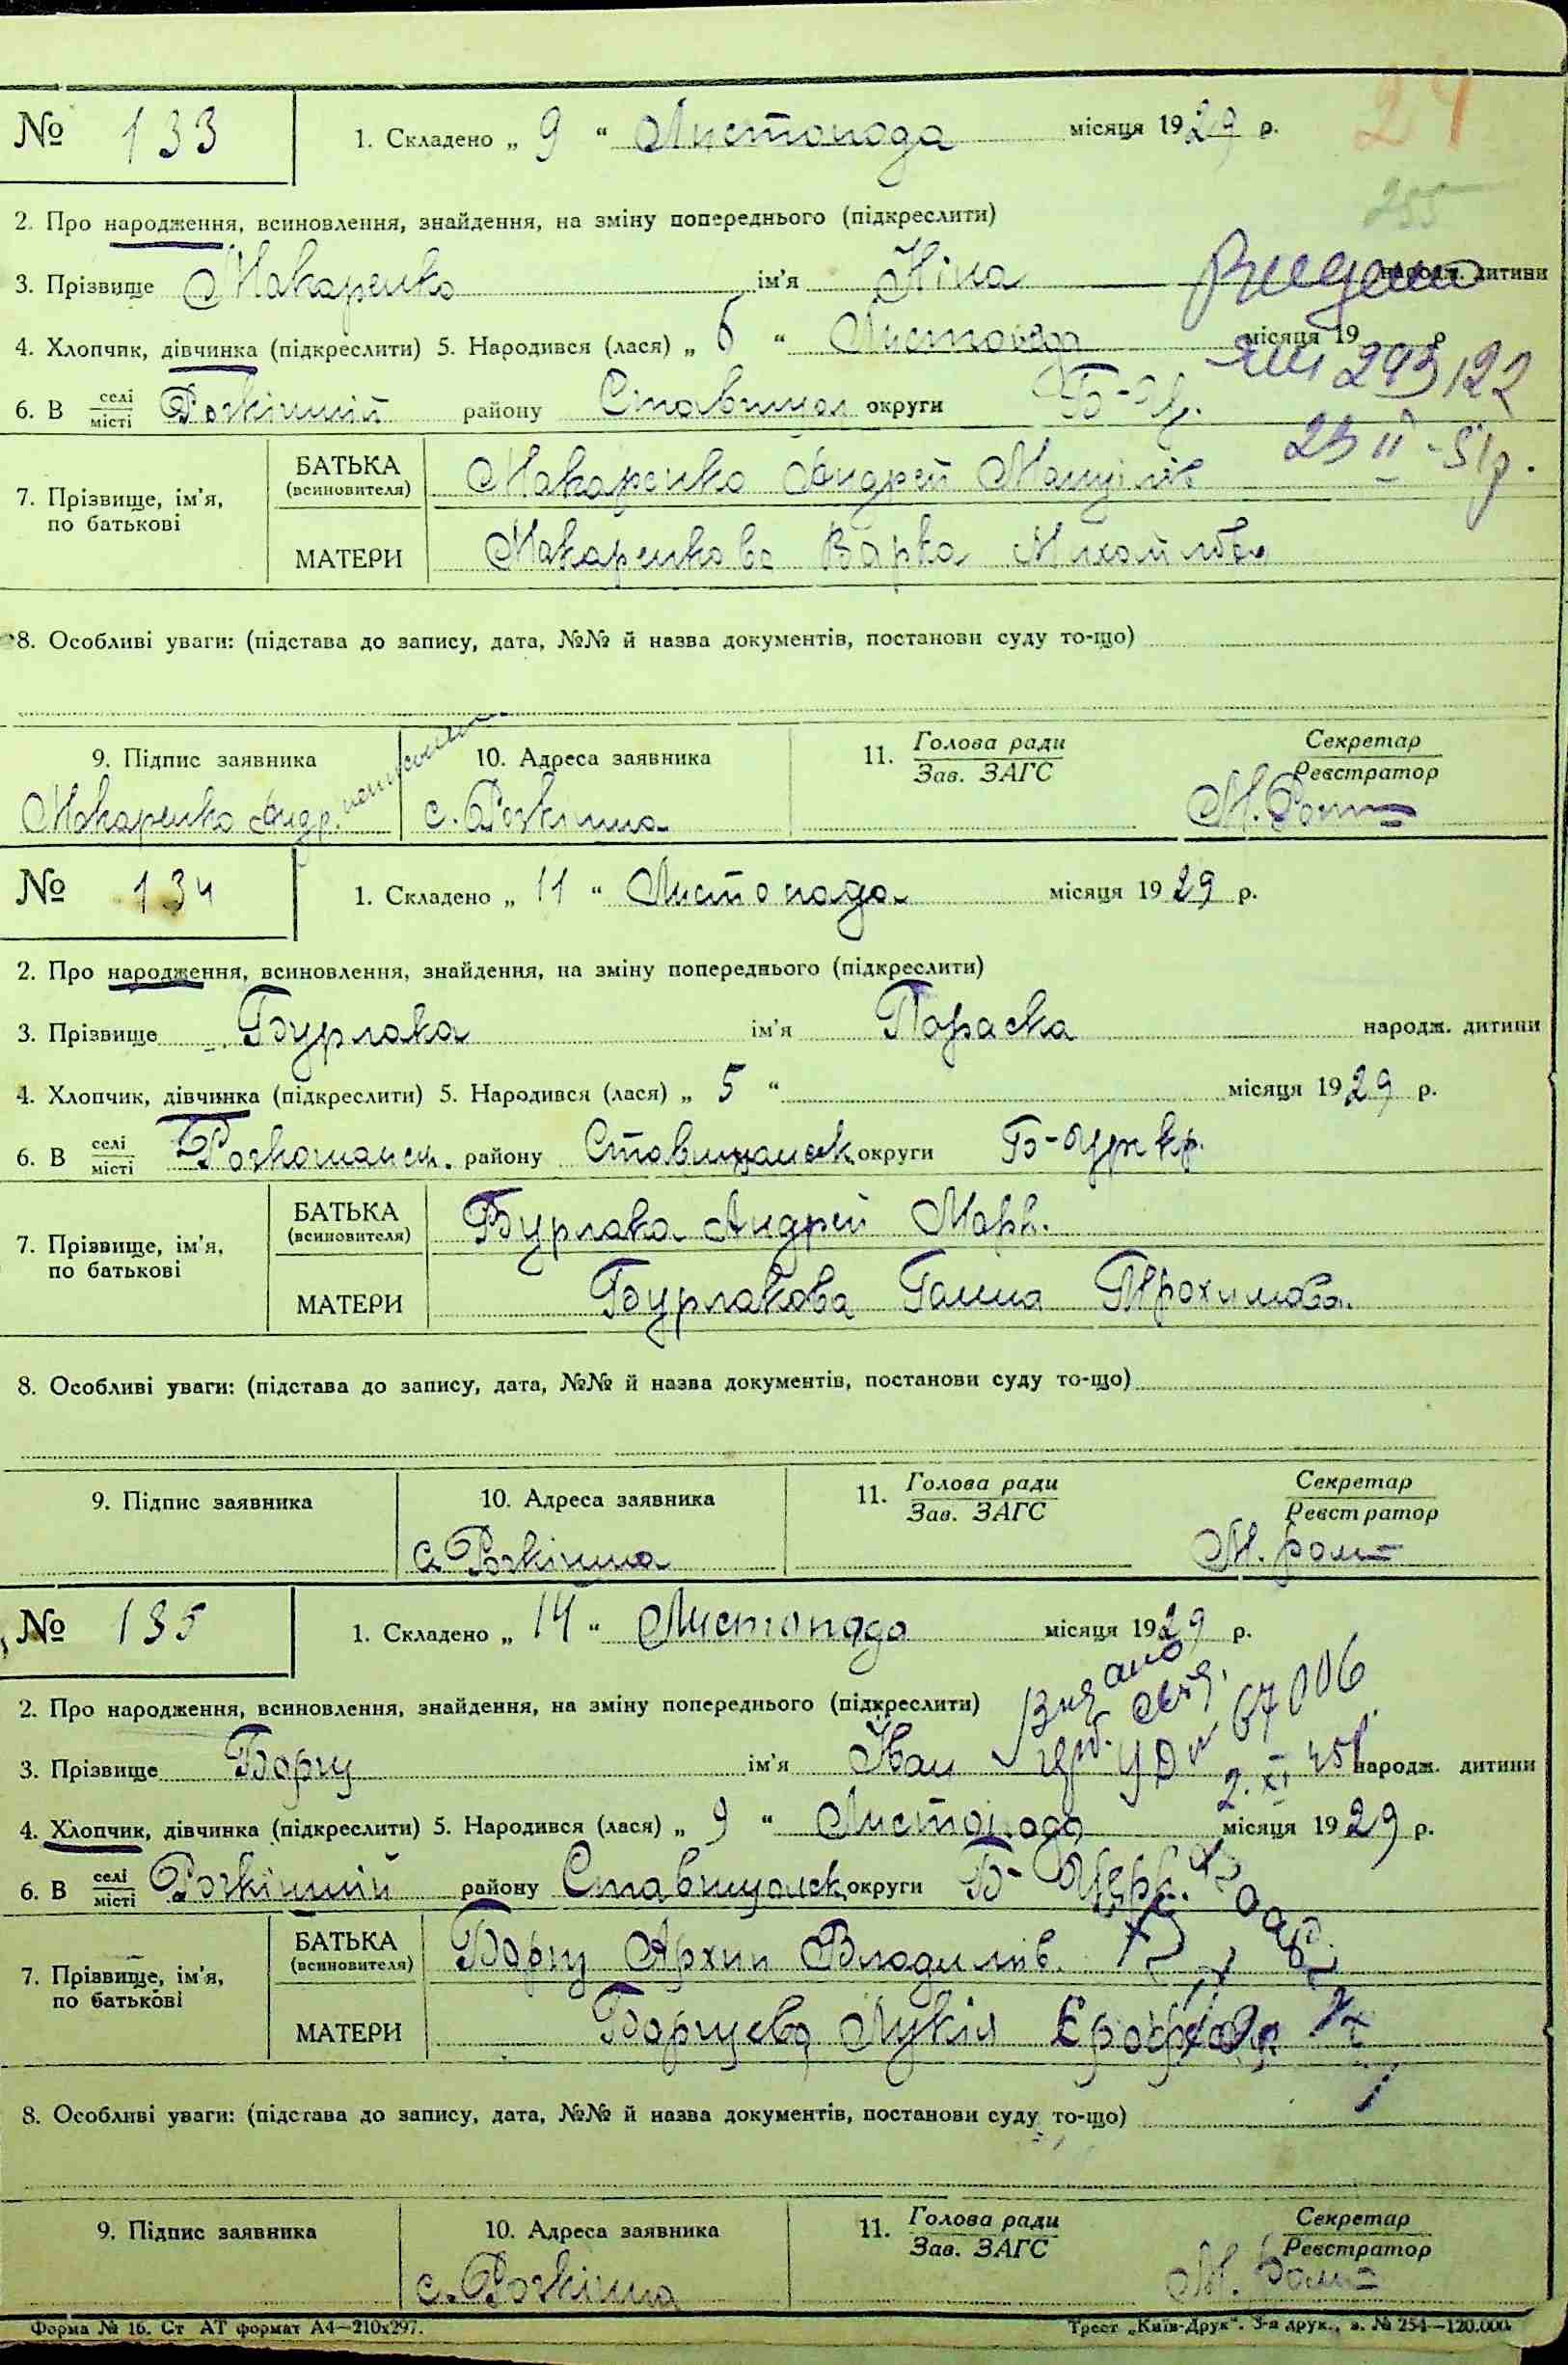 24
№ 133 1. Складено „ 9 “ Листопада місяця 1929 р.
255
2. Про народження, всиновлення, знайдення, на зміну попереднього (підкреслити)
3. Прізвище Макаренко ім’я Ніна народж. дитини
Видано
4. Хлопчик, дівчинка (підкреслити) 5. Народився (лася) „ 6 “ Листопада місяця 19 р
293122
6. В селі місті Розкішній району Ставищан округи Б-Ц.
23 II - 51р.
7. Прізвище, ім’я, по батькові
БАТЬКА (всиновителя) Макаренко Андрей Мануілів
МАТЕРИ Макаренкова Варка Михайлова
8. Особливі уваги: (підстава до запису, дата, №№ й назва документів, постанови суду то-що)
9. Підпис заявника 10. Адреса заявника 11. Голова ради Зав. ЗАГС Секретар Реєстратор
Макаренко Андр. с. Розкішна М.
№ 134 1. Складено „ 11 “ Листопада місяця 1929 р.
2. Про народження, всиновлення, знайдення, на зміну попереднього (підкреслити)
3. Прізвище Бурлака ім’я Параска народж. дитини
4. Хлопчик, дівчинка (підкреслити) 5. Народився (лася) „ 5 “ місяця 1929 р.
6. В селі місті району Ставищанськ округи Б-Церкр.
7. Прізвище, ім’я, по батькові
БАТЬКА (всиновителя) Бурлака Андрей Марк.
МАТЕРИ Бурлакова Ганна Трохимова.
8. Особливі уваги: (підстава до запису, дата, №№ й назва документів, постанови суду то-що)
9. Підпис заявника 10. Адреса заявника 11. Голова ради Зав. ЗАГС Секретар Реєстратор
с. Розкішна М.
№ 135 1. Складено „ 14 “ Листопада місяця 1929 р.
2. Про народження, всиновлення, знайдення, на зміну попереднього (підкреслити)
Видано
67006
3. Прізвище Борщ ім’я Іван народж. дитини
2. XI 45р.
4. Хлопчик, дівчинка (підкреслити) 5. Народився (лася) „ 9 “ Листопада місяця 1929 р.
6. В селі місті Розкішній району Ставищанськ округи Б-Церк.
7. Прізвище, ім’я, по батькові
БАТЬКА (всиновителя) Борщ Архип Владимів.
МАТЕРИ Борщева Лукія
8. Особливі уваги: (підстава до запису, дата, №№ й назва документів, постанови суду то-що)
9. Підпис заявника 10. Адреса заявника 11. Голова ради Зав. ЗАГС Секретар Реєстратор
с. Розкішна М.
Форма № 16. Ст АТ формат А4—210х297. Трест „Київ-Друк“. 3-я друк., з. № 254—120.000.